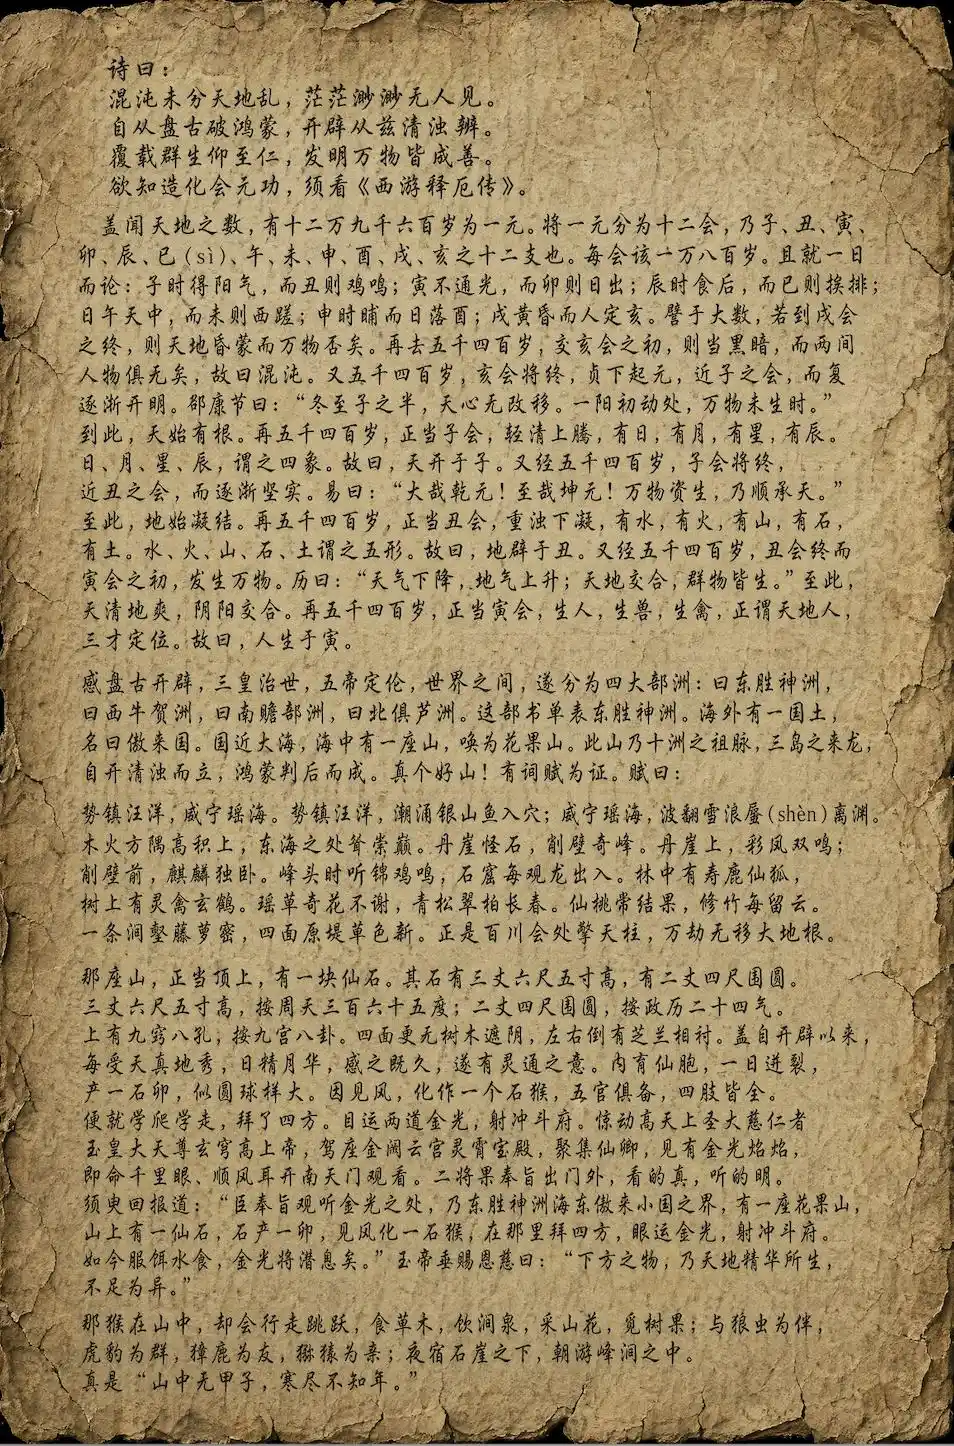 诗曰：
混沌未分天地乱，茫茫渺渺无人见。
自从盘古破鸿蒙，开辟从兹清浊辨。
覆载群生仰至仁，发明万物皆成善。
欲知造化会元功，须看《西游释厄传》。
盖闻天地之数，有十二万九千六百岁为一元。将一元分为十二会，乃子、丑、寅、
卯、辰、巳(sì)、午、未、申、酉、戌、亥之十二支也。每会该一万八百岁。且就一日
而论：子时得阳气，而丑则鸡鸣；寅不通光，而卯则日出；辰时食后，而巳则挨排；
日午天中，而未则西蹉；申时晡而日落酉；戌黄昏而人定亥。譬于大数，若到戌会
之终，则天地昏蒙而万物否矣。再去五千四百岁，交亥会之初，则当黑暗，而两间
人物俱无矣，故曰混沌。又五千四百岁，亥会将终，贞下起元，近子之会，而复
逐渐开明。邵康节曰：“冬至子之半，天心无改移。一阳初动处，万物未生时。”
到此，天始有根。再五千四百岁，正当子会，轻清上腾，有日，有月，有星，有辰。
日、月、星、辰，谓之四象。故曰，天开于子。又经五千四百岁，子会将终，
近丑之会，而逐渐坚实。易曰：“大哉乾元！至哉坤元！万物资生，乃顺承天。”
至此，地始凝结。再五千四百岁，正当丑会，重浊下凝，有水，有火，有山，有石，
有土。水、火、山、石、土谓之五形。故曰，地辟于丑。又经五千四百岁，丑会终而
寅会之初，发生万物。历曰：“天气下降，地气上升；天地交合，群物皆生。”至此，
天清地爽，阴阳交合。再五千四百岁，正当寅会，生人，生兽，生禽，正谓天地人，
三才定位。故曰，人生于寅。
感盘古开辟，三皇治世，五帝定伦，世界之间，遂分为四大部洲：曰东胜神洲，
曰西牛贺洲，曰南赡部洲，曰北俱芦洲。这部书单表东胜神洲。海外有一国土，
名曰傲来国。国近大海，海中有一座山，唤为花果山。此山乃十洲之祖脉，三岛之来龙，
自开清浊而立，鸿蒙判后而成。真个好山！有词赋为证。赋曰：
势镇汪洋，威宁瑶海。势镇汪洋，潮涌银山鱼入穴；威宁瑶海，波翻雪浪蜃(shèn)离渊。
木火方隅高积上，东海之处耸崇巅。丹崖怪石，削壁奇峰。丹崖上，彩凤双鸣；
削壁前，麒麟独卧。峰头时听锦鸡鸣，石窟每观龙出入。林中有寿鹿仙狐，
树上有灵禽玄鹤。瑶草奇花不谢，青松翠柏长春。仙桃常结果，修竹每留云。
一条涧壑藤萝密，四面原堤草色新。正是百川会处擎天柱，万劫无移大地根。
那座山，正当顶上，有一块仙石。其石有三丈六尺五寸高，有二丈四尺围圆。
三丈六尺五寸高，按周天三百六十五度；二丈四尺围圆，按政历二十四气。
上有九窍八孔，按九宫八卦。四面更无树木遮阴，左右倒有芝兰相衬。盖自开辟以来，
每受天真地秀，日精月华，感之既久，遂有灵通之意。内育仙胞，一日迸裂，
产一石卵，似圆球样大。因见风，化作一个石猴，五官俱备，四肢皆全。
便就学爬学走，拜了四方。目运两道金光，射冲斗府。惊动高天上圣大慈仁者
玉皇大天尊玄穹高上帝，驾座金阙云宫灵霄宝殿，聚集仙卿，见有金光焰焰，
即命千里眼、顺风耳开南天门观看。二将果奉旨出门外，看的真，听的明。
须臾回报道：“臣奉旨观听金光之处，乃东胜神洲海东傲来小国之界，有一座花果山，
山上有一仙石，石产一卵，见风化一石猴，在那里拜四方，眼运金光，射冲斗府。
如今服饵水食，金光将潜息矣。”玉帝垂赐恩慈曰：“下方之物，乃天地精华所生，
不足为异。”
那猴在山中，却会行走跳跃，食草木，饮涧泉，采山花，觅树果；与狼虫为伴，
虎豹为群，獐鹿为友，猕猿为亲；夜宿石崖之下，朝游峰洞之中。
真是“山中无甲子，寒尽不知年。”